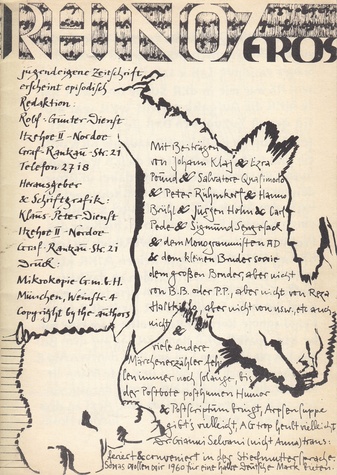 RHINOZEROS
jugendeigene Zeitschrift
erscheint episodisch
Redaktion:
Rolf-Gunter Dienst
Itzehoe II - Nordoe
Graf-Rantzau-Str. 21
Telefon 27 18
Herausgeber
& Schriftgrafik:
Klaus-Peter Dienst
Itzehoe II - Nordoe
Graf-Rantzau-Str. 21
Druck:
Mikrokopie G.m.b.H.
München, Weinstr. 4
Copyright by the authors
Mit Beiträgen
von Johann Klaj & Ezra
Pound & Salvatore Quasimodo
& Peter Rühmkorf & Hanno
Brühl & Jürgen Hohn & Carl
Pede & Sigmund Sengejack
& dem Monogrammisten AD
& dem kleinen Bruder sowie
dem großen Bruder, aber nicht
von B.B. oder P.P., aber nicht von Reza
aber nicht von usw. etc auch
nicht &
viele andere
Märchenerzähler feh
len immer noch solange, bis
der Postbote posthumen Humor
& Postscriptum bringt, Arpsensuppe
gibt's vielleicht, AG trop heult vielleicht
Der Gianni Selvani (nicht Anna) trans:
feriert & conveniert in der Stiefmuttersprache.
wollen wir 1960 für eine halbe Mark bieten.